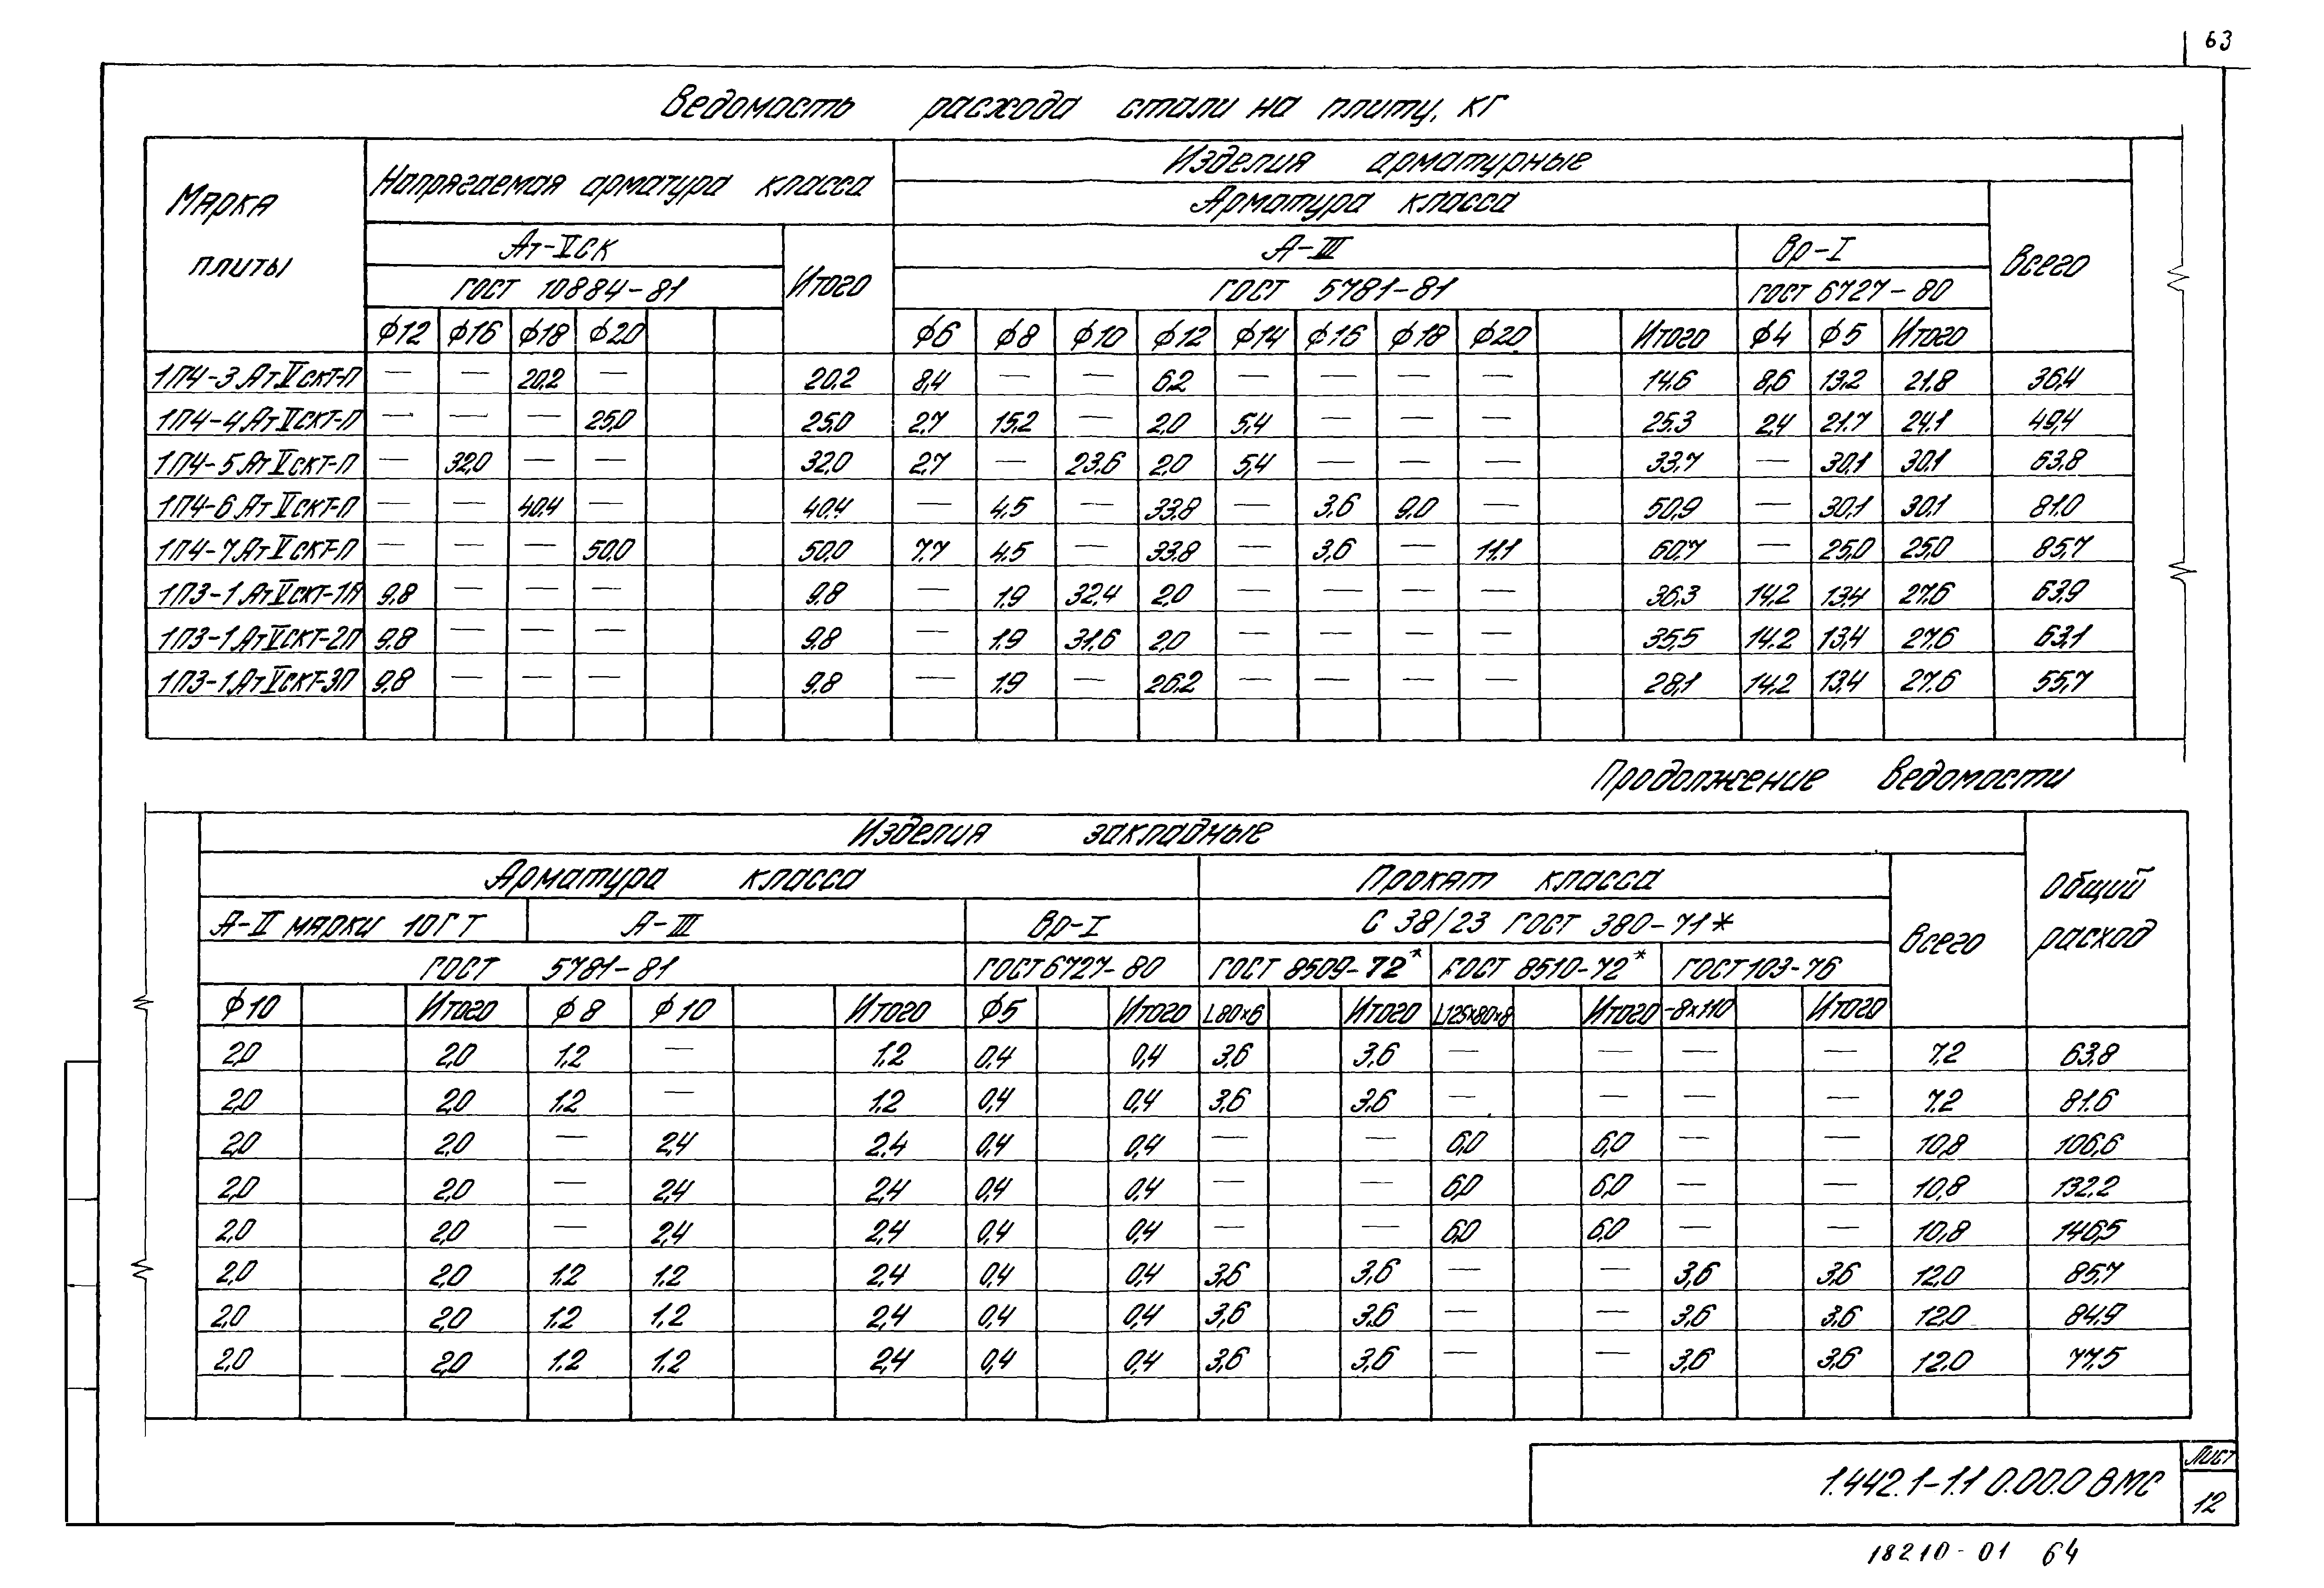 63
Ведомость расхода стали на плиту, кг
Марка плиты
Напрягаемая арматура класса
Изделия арматурные
Арматура класса
Ат-VСК
Итого
А-III
Вр-I
Всего
ГОСТ 10884-81
ГОСТ 5781-81
ГОСТ 6727-80
ф12 ф16 ф18 ф20 ф6 ф8 ф10 ф12 ф14 ф16 ф18 ф20 Итого ф4 ф5 Итого
1П4-3АтVСКТ-П — — 20,2 — 20,2 8,4 — — 6,2 — — — — 14,6 8,6 13,2 21,8 36,4
1П4-4АтVСКТ-П — — — 25,0 25,0 2,7 15,2 — 2,0 5,4 — — — 25,3 2,4 21,7 24,1 49,4
1П4-5АтVСКТ-П — 32,0 — — 32,0 2,7 — 23,6 2,0 5,4 — — — 33,7 — 30,1 30,1 63,8
1П4-6АтVСКТ-П — — 40,4 — 40,4 — 4,5 — 33,8 — 3,6 9,0 — 50,9 — 30,1 30,1 81,0
1П4-7АтVСКТ-П — — — 50,0 50,0 7,7 4,5 — 33,8 — 3,6 — 11,1 60,7 — 25,0 25,0 85,7
1П3-1АтVСКТ-1П 9,8 — — — 9,8 — 1,9 32,4 2,0 — — — — 36,3 14,2 13,4 27,6 63,9
1П3-1АтVСКТ-2П 9,8 — — — 9,8 — 1,9 31,6 2,0 — — — — 35,5 14,2 13,4 27,6 63,1
1П3-1АтVСКТ-3П 9,8 — — — 9,8 — 1,9 — 26,2 — — — — 28,1 14,2 13,4 27,6 55,7
Продолжение ведомости
Изделия закладные
Общий расход
Арматура класса
Прокат класса
Всего
А-II марки 10ГТ
А-III
Вр-I
С 38/23 ГОСТ 380-71*
ГОСТ 5781-81
ГОСТ 6727-80
ГОСТ 8509-72*
ГОСТ 8510-72*
ГОСТ 103-76
ф10 Итого ф8 ф10 Итого ф5 Итого L80×6 Итого L125×80×8 Итого -8×110 Итого
2,0 2,0 1,2 — 1,2 0,4 0,4 3,6 3,6 — — — — 7,2 63,8
2,0 2,0 1,2 — 1,2 0,4 0,4 3,6 3,6 — — — — 7,2 81,6
2,0 2,0 — 2,4 2,4 0,4 0,4 — — 6,0 6,0 — — 10,8 106,6
2,0 2,0 — 2,4 2,4 0,4 0,4 — — 6,0 6,0 — — 10,8 132,2
2,0 2,0 — 2,4 2,4 0,4 0,4 — — 6,0 6,0 — — 10,8 146,5
2,0 2,0 1,2 1,2 2,4 0,4 0,4 3,6 3,6 — — 3,6 3,6 12,0 85,7
2,0 2,0 1,2 1,2 2,4 0,4 0,4 3,6 3,6 — — 3,6 3,6 12,0 84,9
2,0 2,0 1,2 1,2 2,4 0,4 0,4 3,6 3,6 — — 3,6 3,6 12,0 77,5
1.442.1-1.1 0.00.0 ВМС
Лист
12
18210-01 64